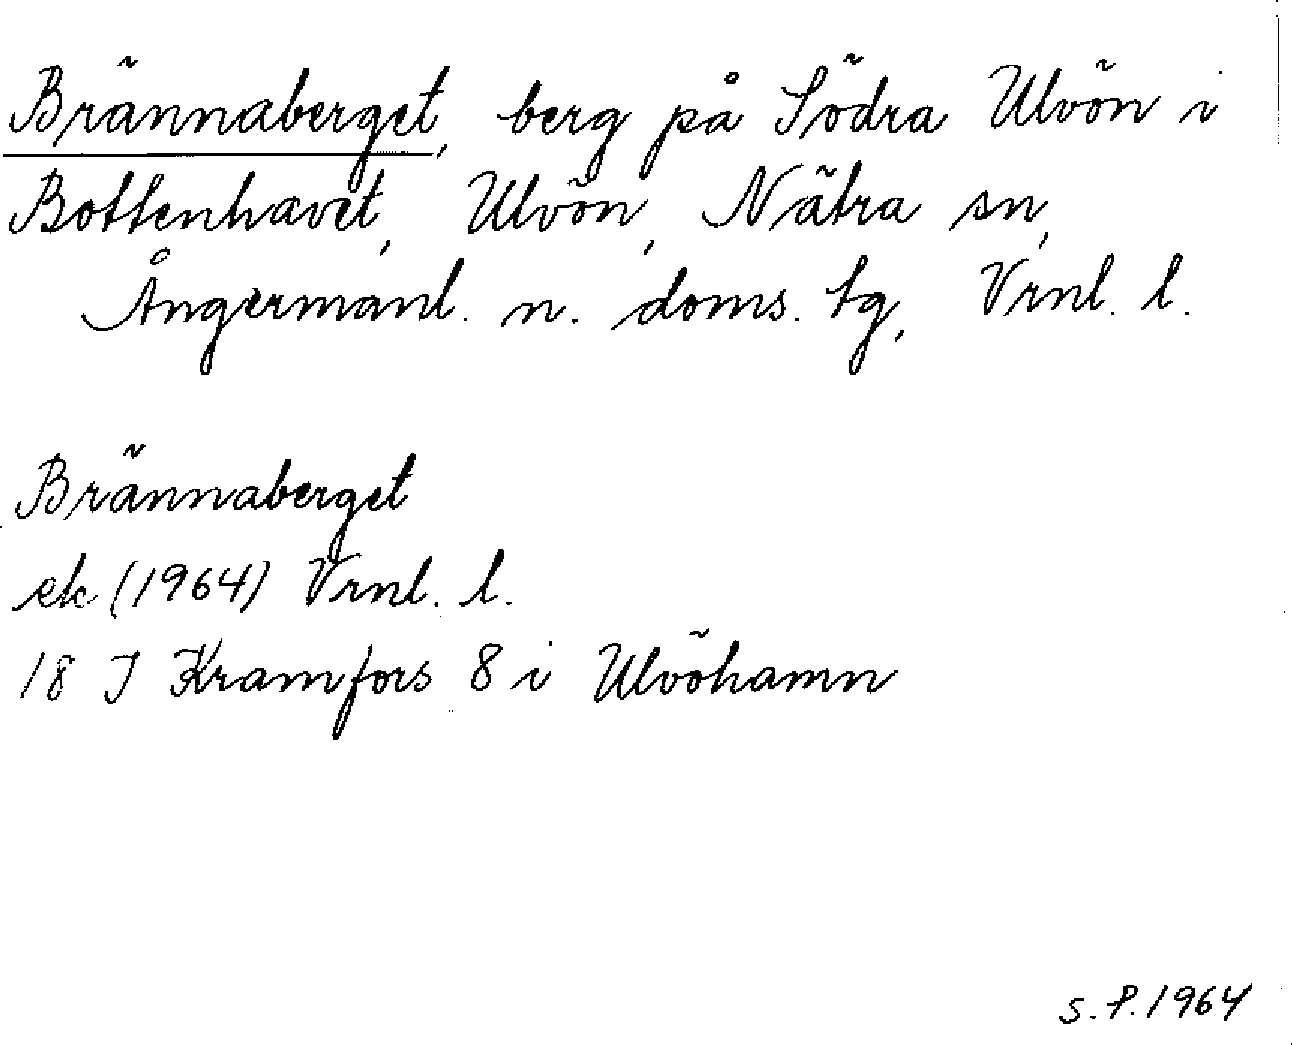 Brännaberget, berg på Södra Ulvön i
Bottenhavet, Ulvön, Nätra sn,
Ångermanl. n. doms. tg, Vrnl. l.
Brännaberget
ek (1964) Vrnl. l.
18 J Kramfors 8 i Ulvöhamn
S.P. 1964